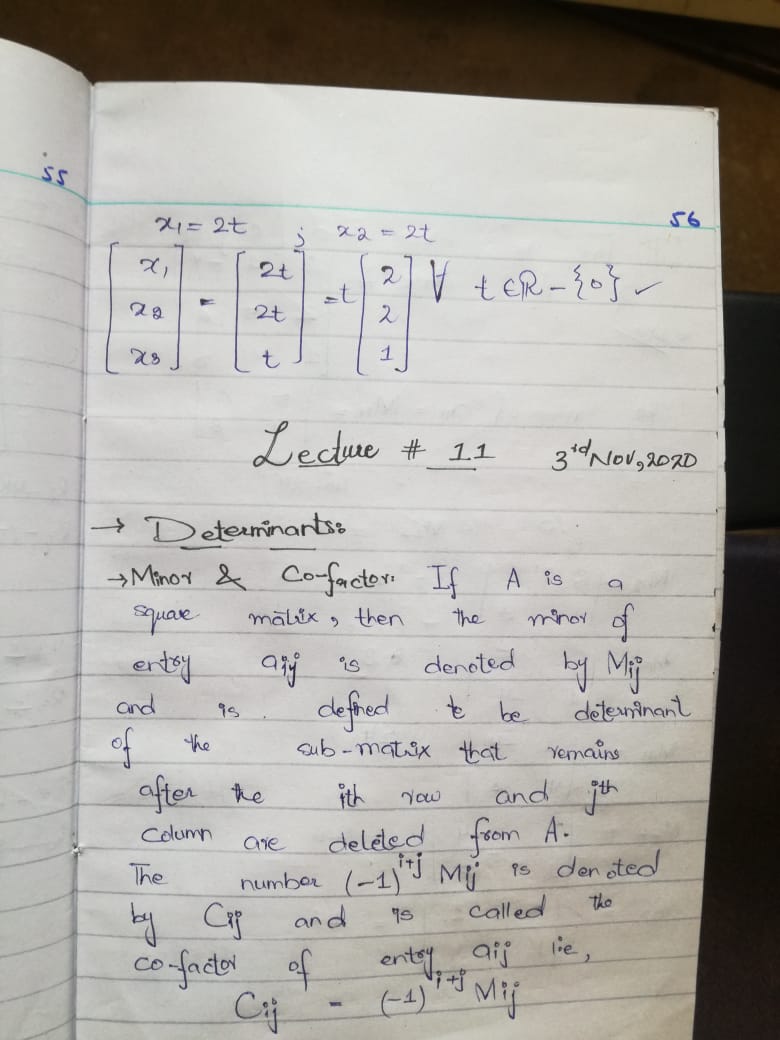 55
56
x₁ = 2t ; x₂ = 2t
[x₁ x₂ x₃] = [2t 2t t] = t [2 2 1] ∀ t ∈ ℝ - {0} ✓
Lecture # 11 3rd Nov, 2020
→ Determinants:
→ Minor & Co-factor: If A is a
square matrix, then the minor of
entry aij is denoted by Mij
and is defined to be determinant
of the sub-matrix that remains
after the ith row and jth
column are deleted from A.
The number (-1)^i+j Mij is denoted
by Cij and is called the
co-factor of entry aij i.e,
Cij = (-1)^i+j Mij